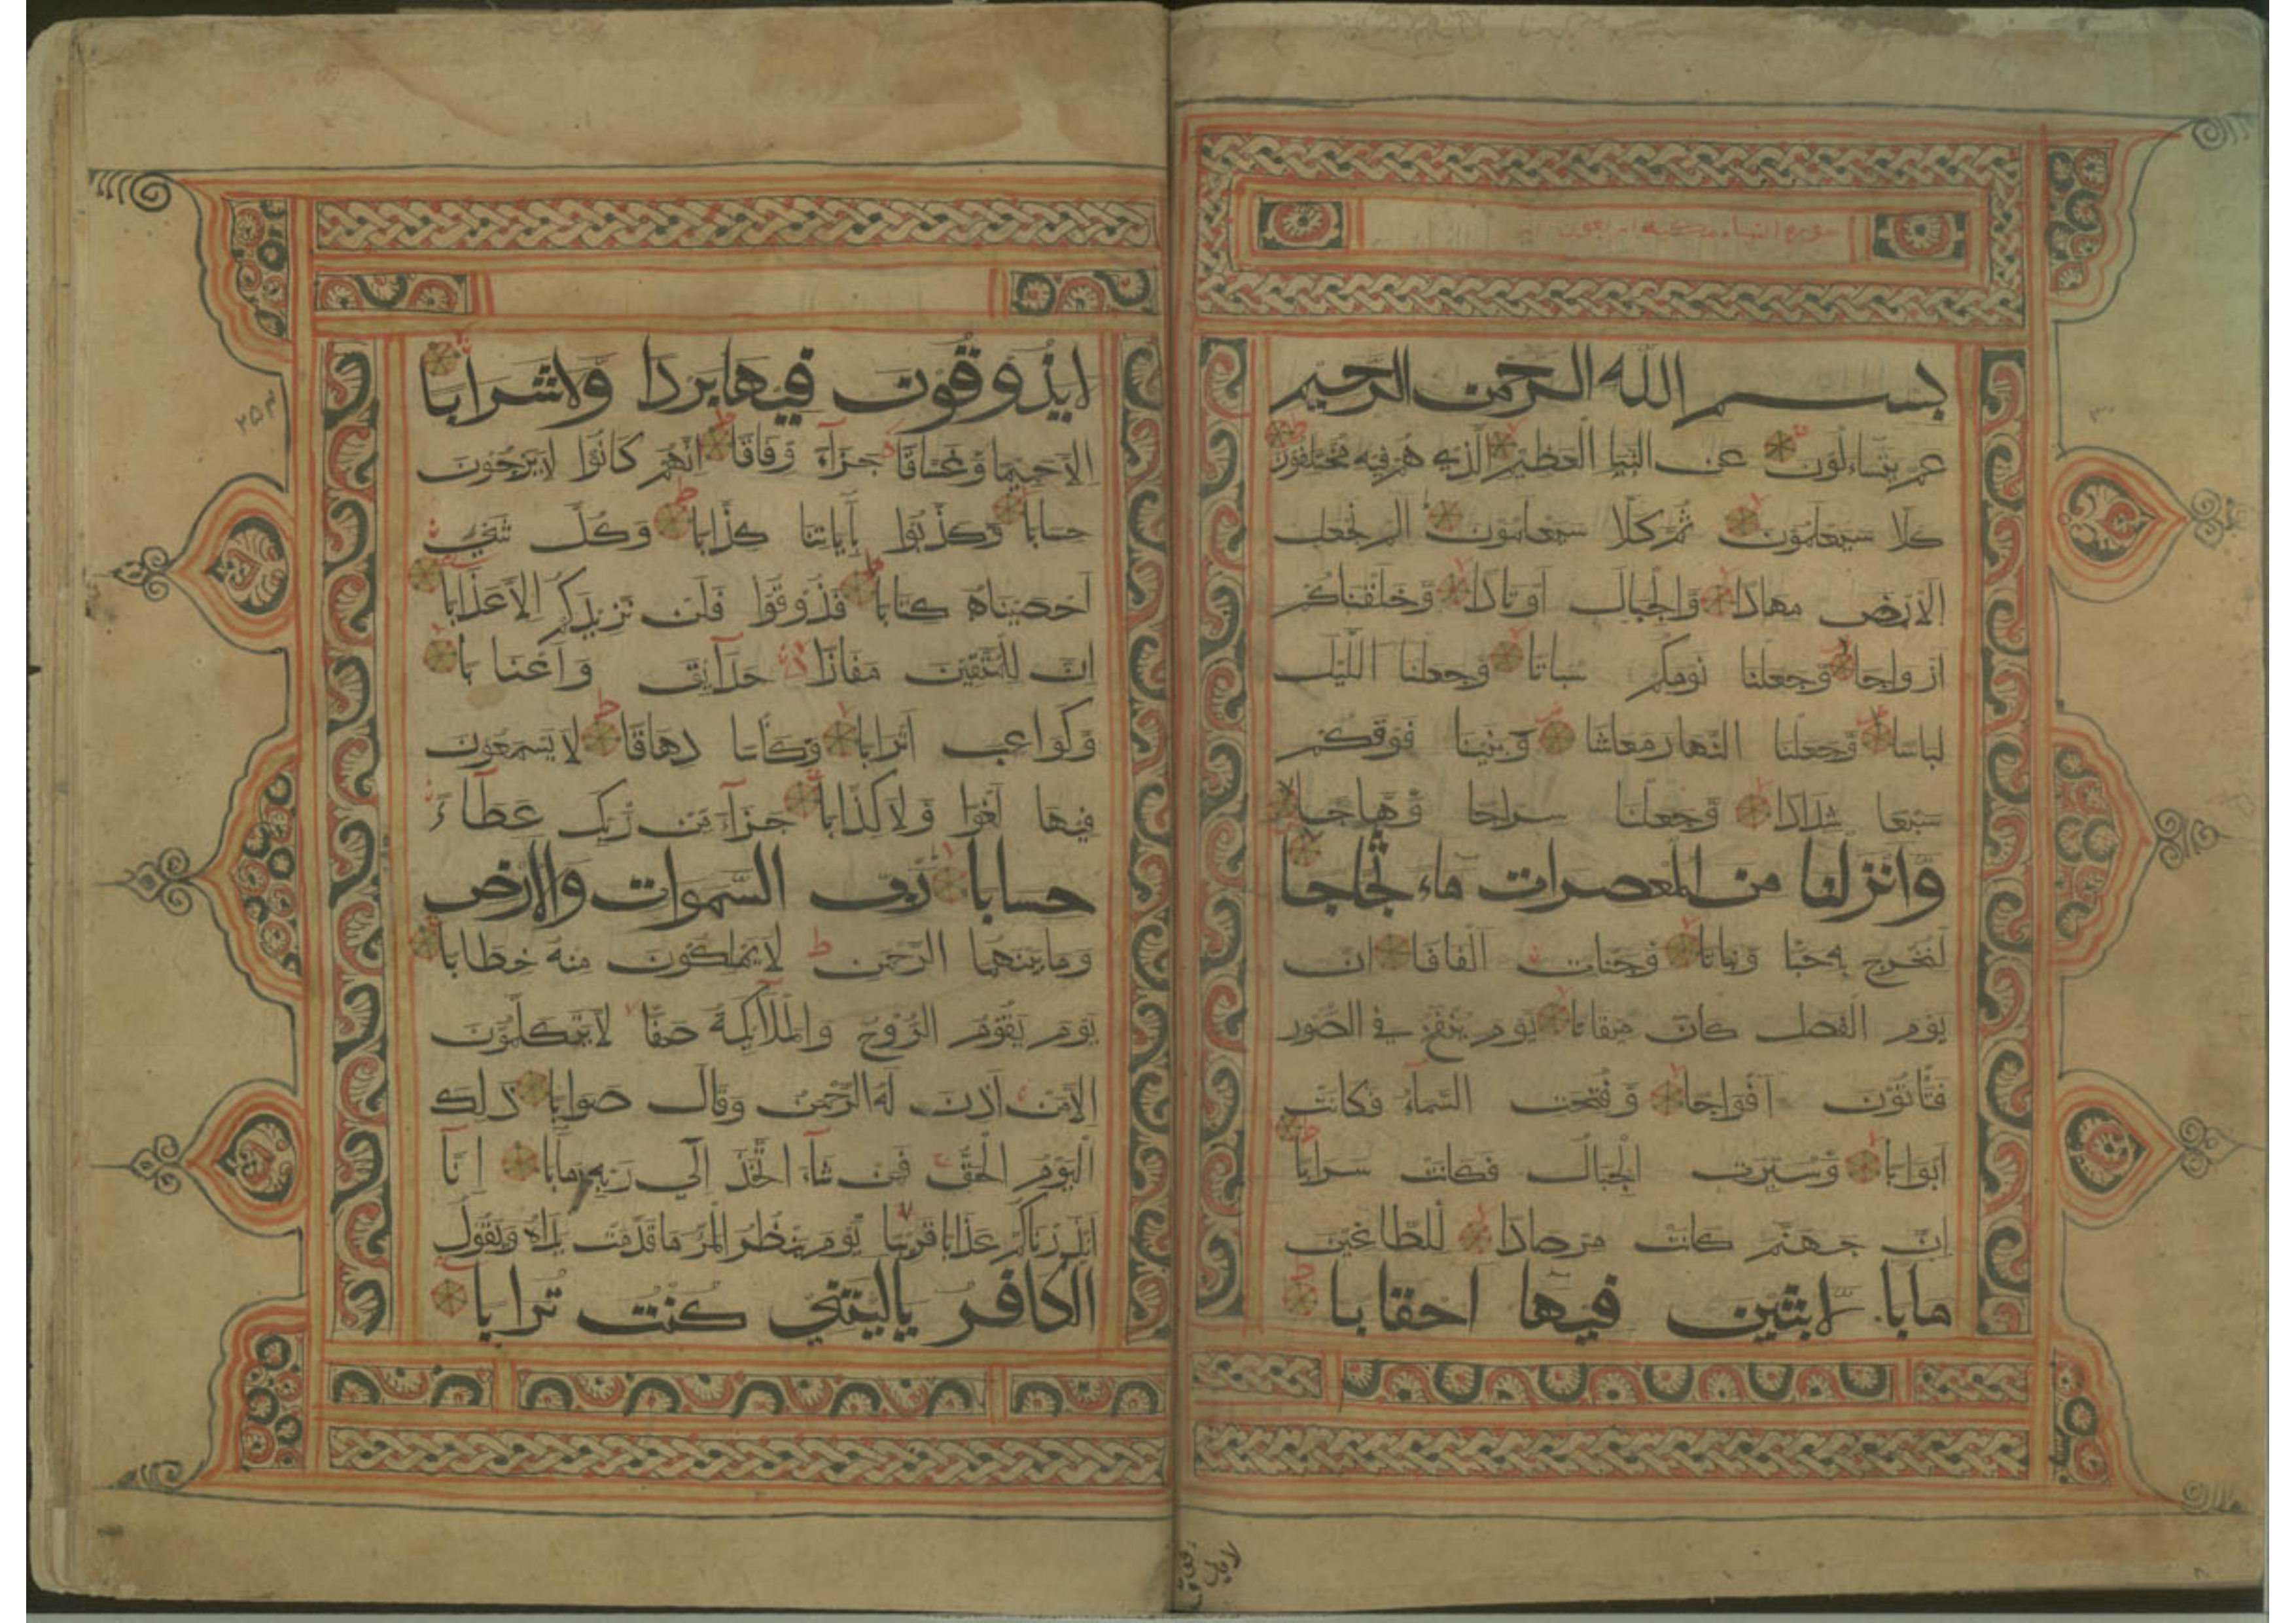 سورة النباء مكية اربعون اية
بسم الله الرحمن الرحيم
عم يتساءلون عن النبا العظيم الذي هم فيه مختلفون
كلا سيعلمون ثم كلا سيعلمون الم نجعل
الارض مهادا والجبال اوتادا وخلقناكم
ازواجا وجعلنا نومكم سباتا وجعلنا الليل
لباسا وجعلنا النهار معاشا وبنينا فوقكم
سبعا شدادا وجعلنا سراجا وهاجا
وانزلنا من المعصرات ماء ثجاجا
لنخرج به حبا ونباتا وجنات الفافا ان
يوم الفصل كان ميقاتا يوم ينفخ في الصور
فتاتون افواجا وفتحت السماء فكانت
ابوابا وسيرت الجبال فكانت سرابا
ان جهنم كانت مرصادا للطاغين
مابا لابثين فيها احقابا
لايذوقون
لايذوقون فيها بردا ولاشرابا
الاحميما وغساقا جزاء وفاقا انهم كانوا لايرجون
حسابا وكذبوا بآياتنا كذابا وكل شيء
احصيناه كتابا فذوقوا فلن نزيدكم الاعذابا
ان للمتقين مفازا حدائق واعنابا
وكواعب اترابا وكأسا دهاقا لايسمعون
فيها لغوا ولاكذابا جزاء من ربك عطاء
حسابا رب السموات والارض
ومابينهما الرحمن لايملكون منه خطابا
يوم يقوم الروح والملآئكة صفا لايتكلمون
الامن اذن له الرحمن وقال صوابا ذلك
اليوم الحق فمن شاء اتخذ الي ربه مآبا انا
انذرناكم عذابا قريبا يوم ينظر المر ماقدمت يداه ويقول
الكافر ياليتني كنت ترابا
٢٥٣